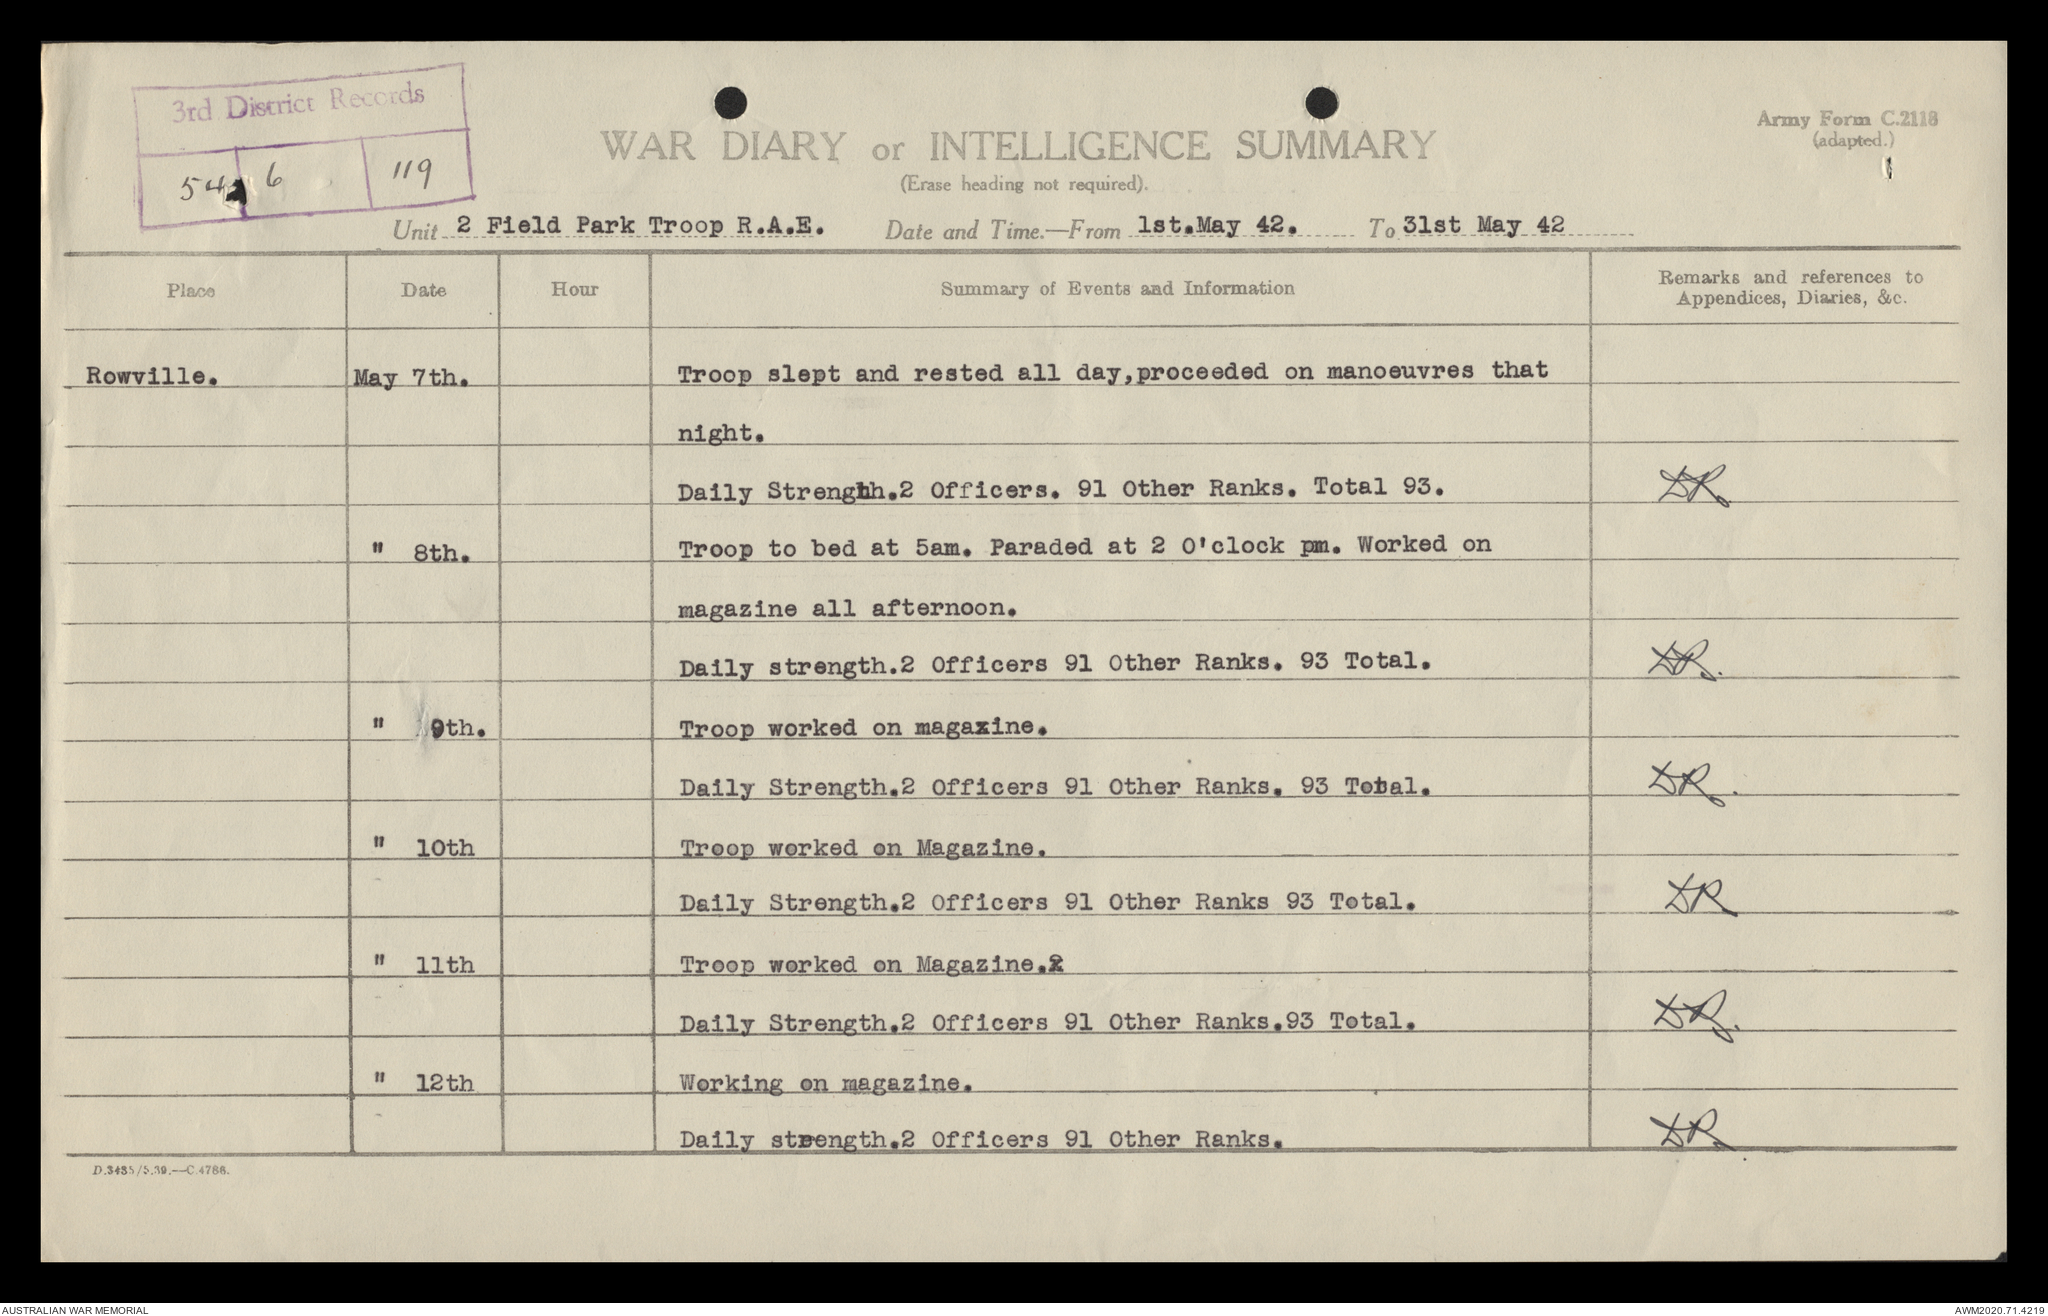 3rd District Records
54 6 119
Army Form C.2118
(adapted.)
WAR DIARY or INTELLIGENCE SUMMARY
(Erase heading not required).
Unit 2 Field Park Troop R.A.E. Date and Time.—From 1st.May 42. To 31st May 42
Place Date Hour Summary of Events and Information Remarks and references to
Appendices, Diaries, &c.
Rowville. May 7th. Troop slept and rested all day,proceeded on manoeuvres that
night.
Daily Strength.2 Officers. 91 Other Ranks. Total 93. DR.
" 8th. Troop to bed at 5am. Paraded at 2 O'clock pm. Worked on
magazine all afternoon.
Daily strength.2 Officers 91 Other Ranks. 93 Total. DR.
" 9th. Troop worked on magaxine.
Daily Strength.2 Officers 91 Other Ranks. 93 Total. DR.
" 10th Troop worked on Magazine.
Daily Strength.2 Officers 91 Other Ranks 93 Total. DR
" 11th Troop worked on Magazine.
Daily Strength.2 Officers 91 Other Ranks.93 Total. DR.
" 12th Working on magazine.
Daily strength.2 Officers 91 Other Ranks. DR.
D.3485/5.39.—C.4788.
AUSTRALIAN WAR MEMORIAL AWM2020.71.4219